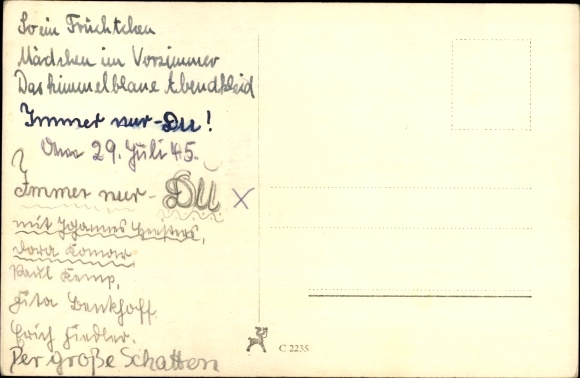 So ein Früchtchen
Mädchen im Vorzimmer
Das himmelblaue Abendkleid
Immer nur - Du!
29. Juli 45.
Immer nur - DU X
mit Johannes Heesters,
Dora Komar,
Paul Kemp,
Fita Benkhoff,
Erich Fiedler.
Der große Schatten
C 2235